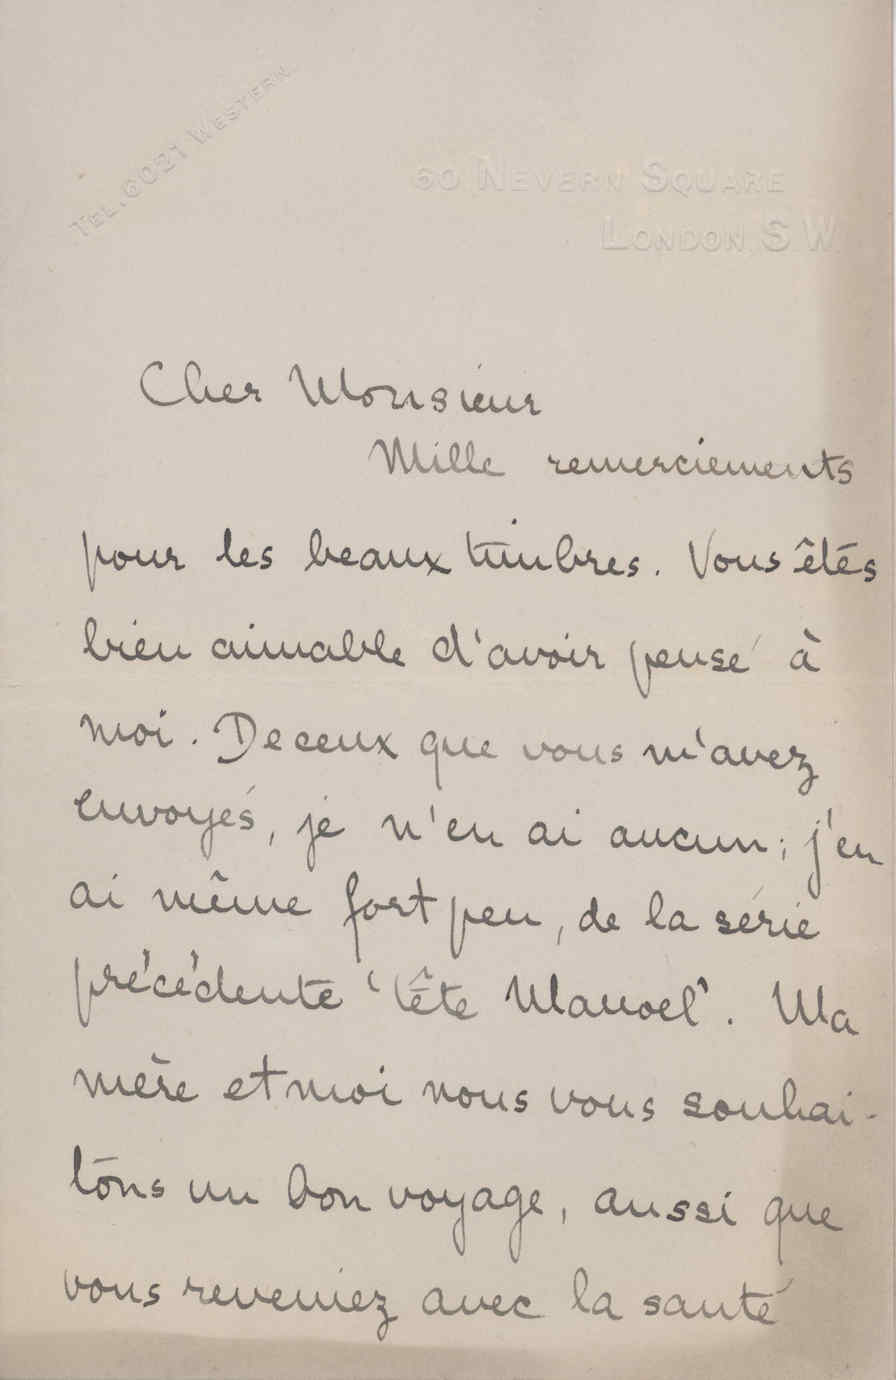 TEL. 6021 WESTERN.
60 NEVERN SQUARE
LONDON. S.W.
Cher Monsieur
Mille remerciements
pour les beaux timbres. Vous êtes
bien aimable d'avoir pensé à
moi. De ceux que vous m'avez
envoyés, je n'en ai aucun; j'en
ai même fort peu, de la série
précédente 'tête Manoel'. Ma
mère et moi nous vous souhai-
tons un bon voyage, aussi que
vous reveniez avec la santé